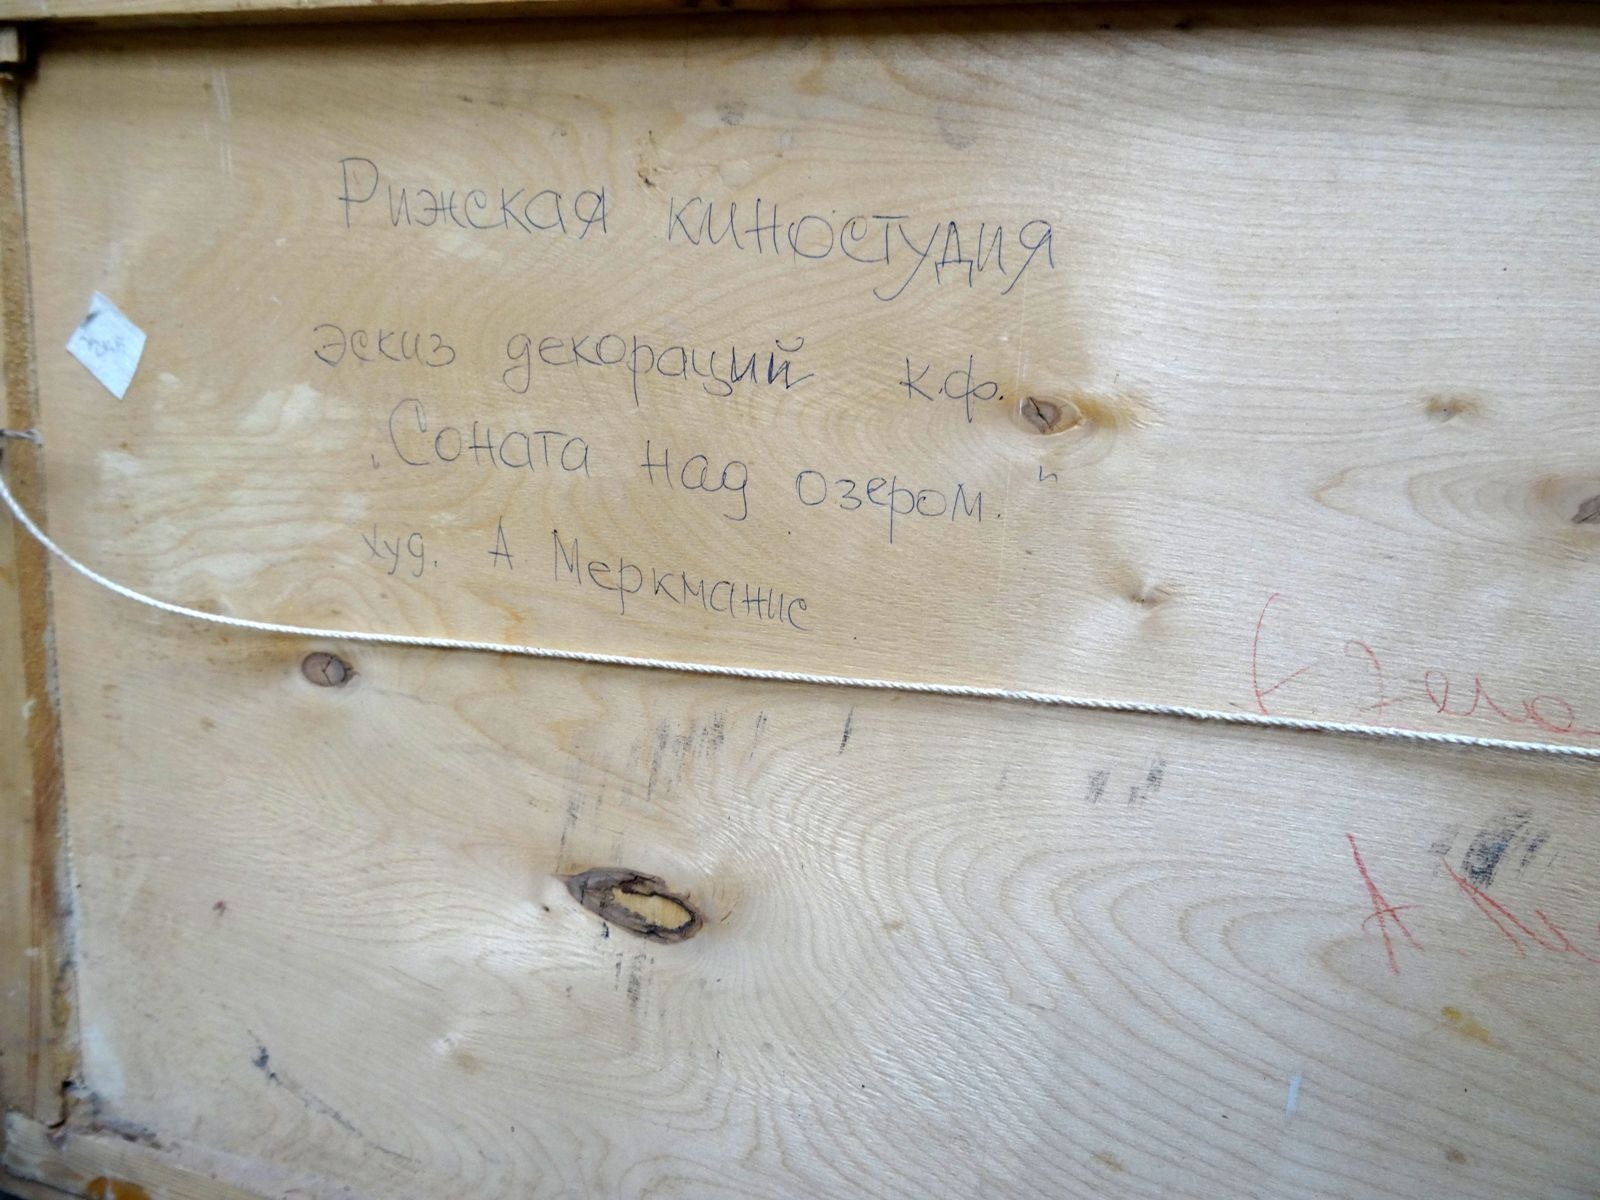 Рижская киностудия
эскиз декораций к.ф.
„Соната над озером."
худ. А Меркманис
А.